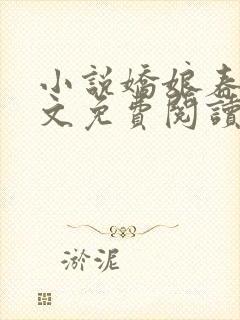 小說嬌娘春
文免費閱讀
淤泥